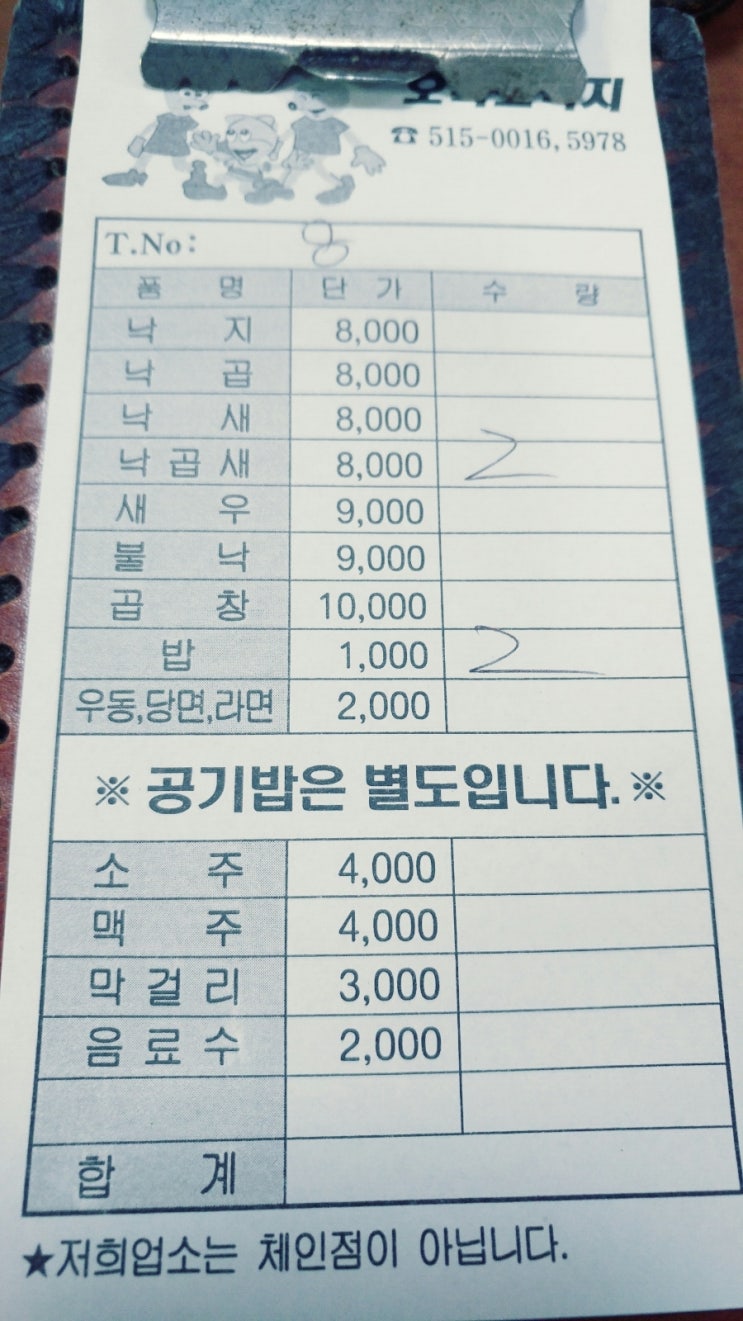 ☎ 515-0016, 5978
T.No: 8
품 명 단 가 수 량
낙 지 8,000
낙 곱 8,000
낙 새 8,000
낙 곱 새 8,000 2
새 우 9,000
불 낙 9,000
곱 창 10,000
밥 1,000 2
우동,당면,라면 2,000
※ 공기밥은 별도입니다. ※
소 주 4,000
맥 주 4,000
막 걸 리 3,000
음 료 수 2,000
합 계
★저희업소는 체인점이 아닙니다.